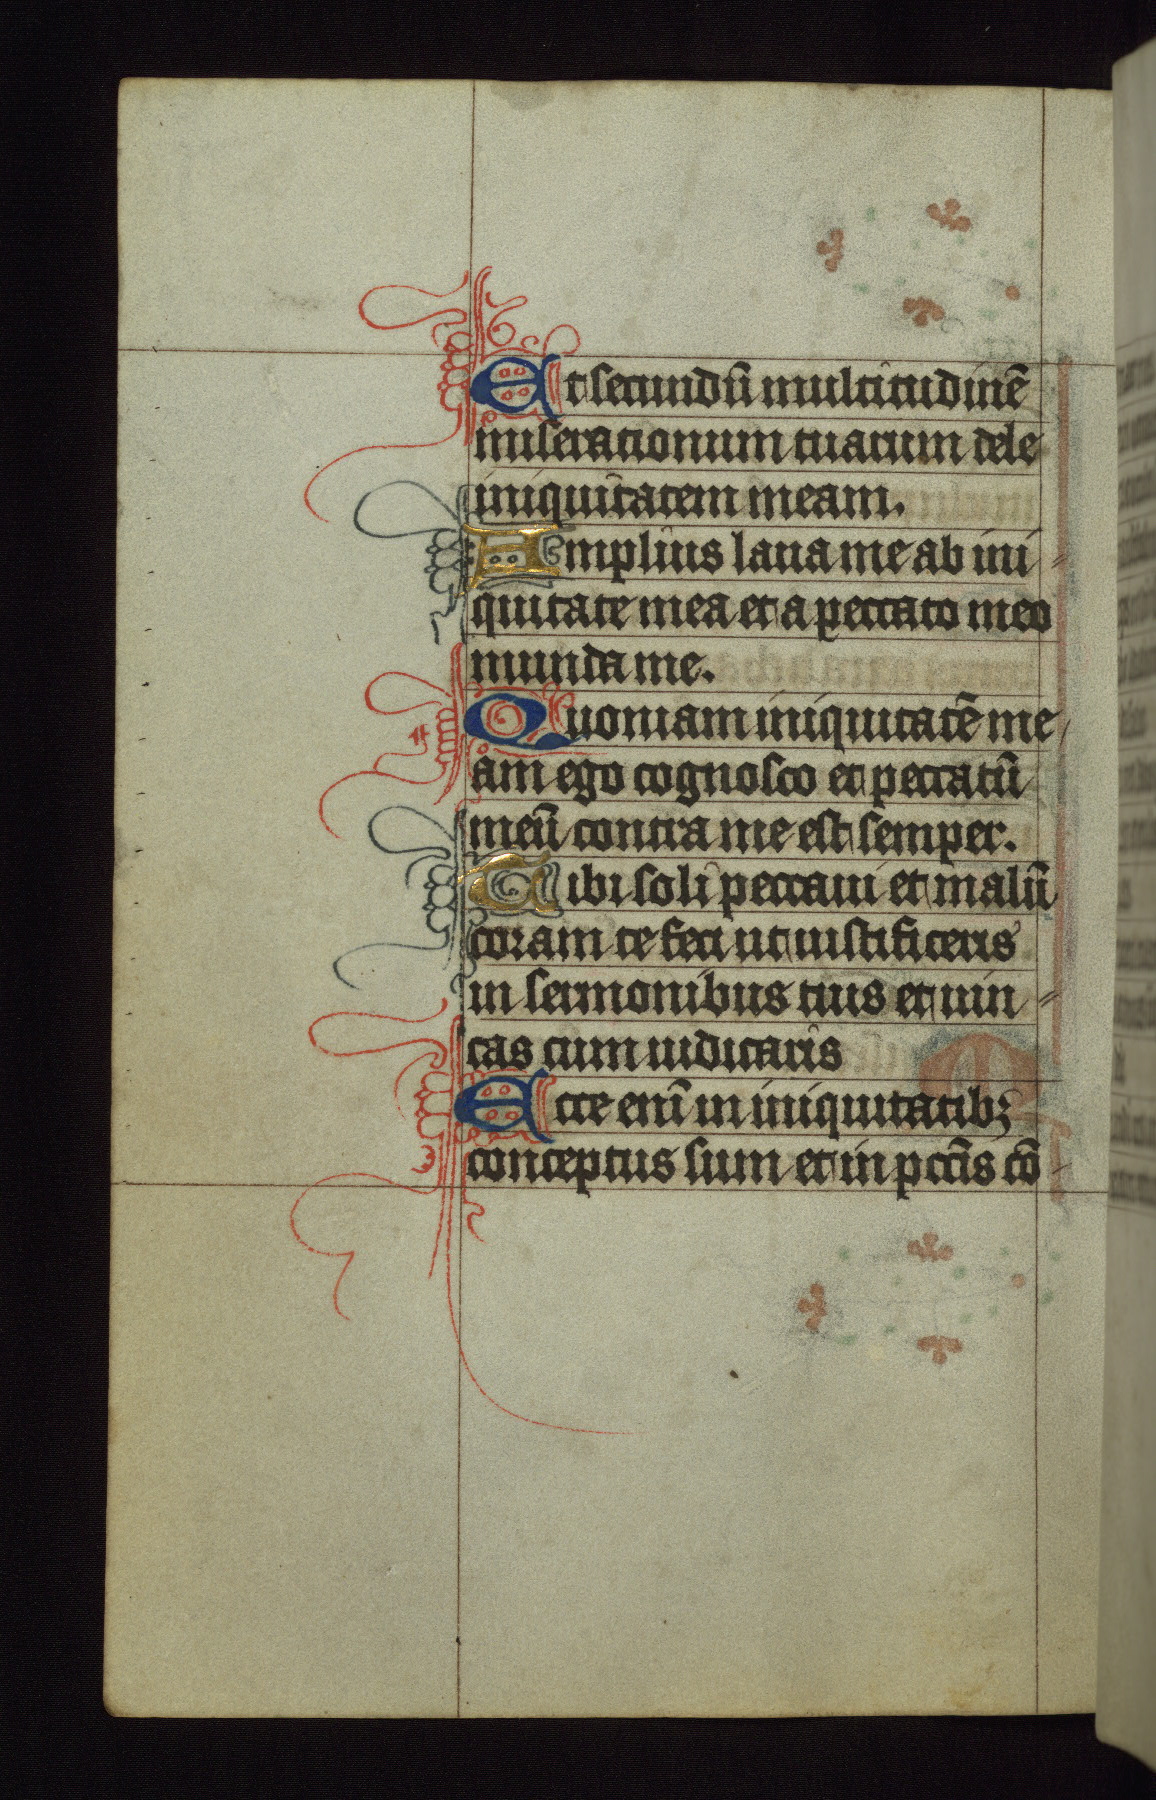 Et secundū multitudinē
miserationum tuarum dele
iniquitatem meam.
Amplius laua me ab ini
quitate mea et a peccato meo
munda me.
Quoniam iniquitatē me
am ego cognosco et peccatū
meū contra me est semper.
Tibi soli peccaui et malū
coram te feci ut iustificeris
in sermonibus tuis et uin
cas cum iudicaris
Ecce enī in iniquitatibꝫ
conceptus sum et in pccīs cō